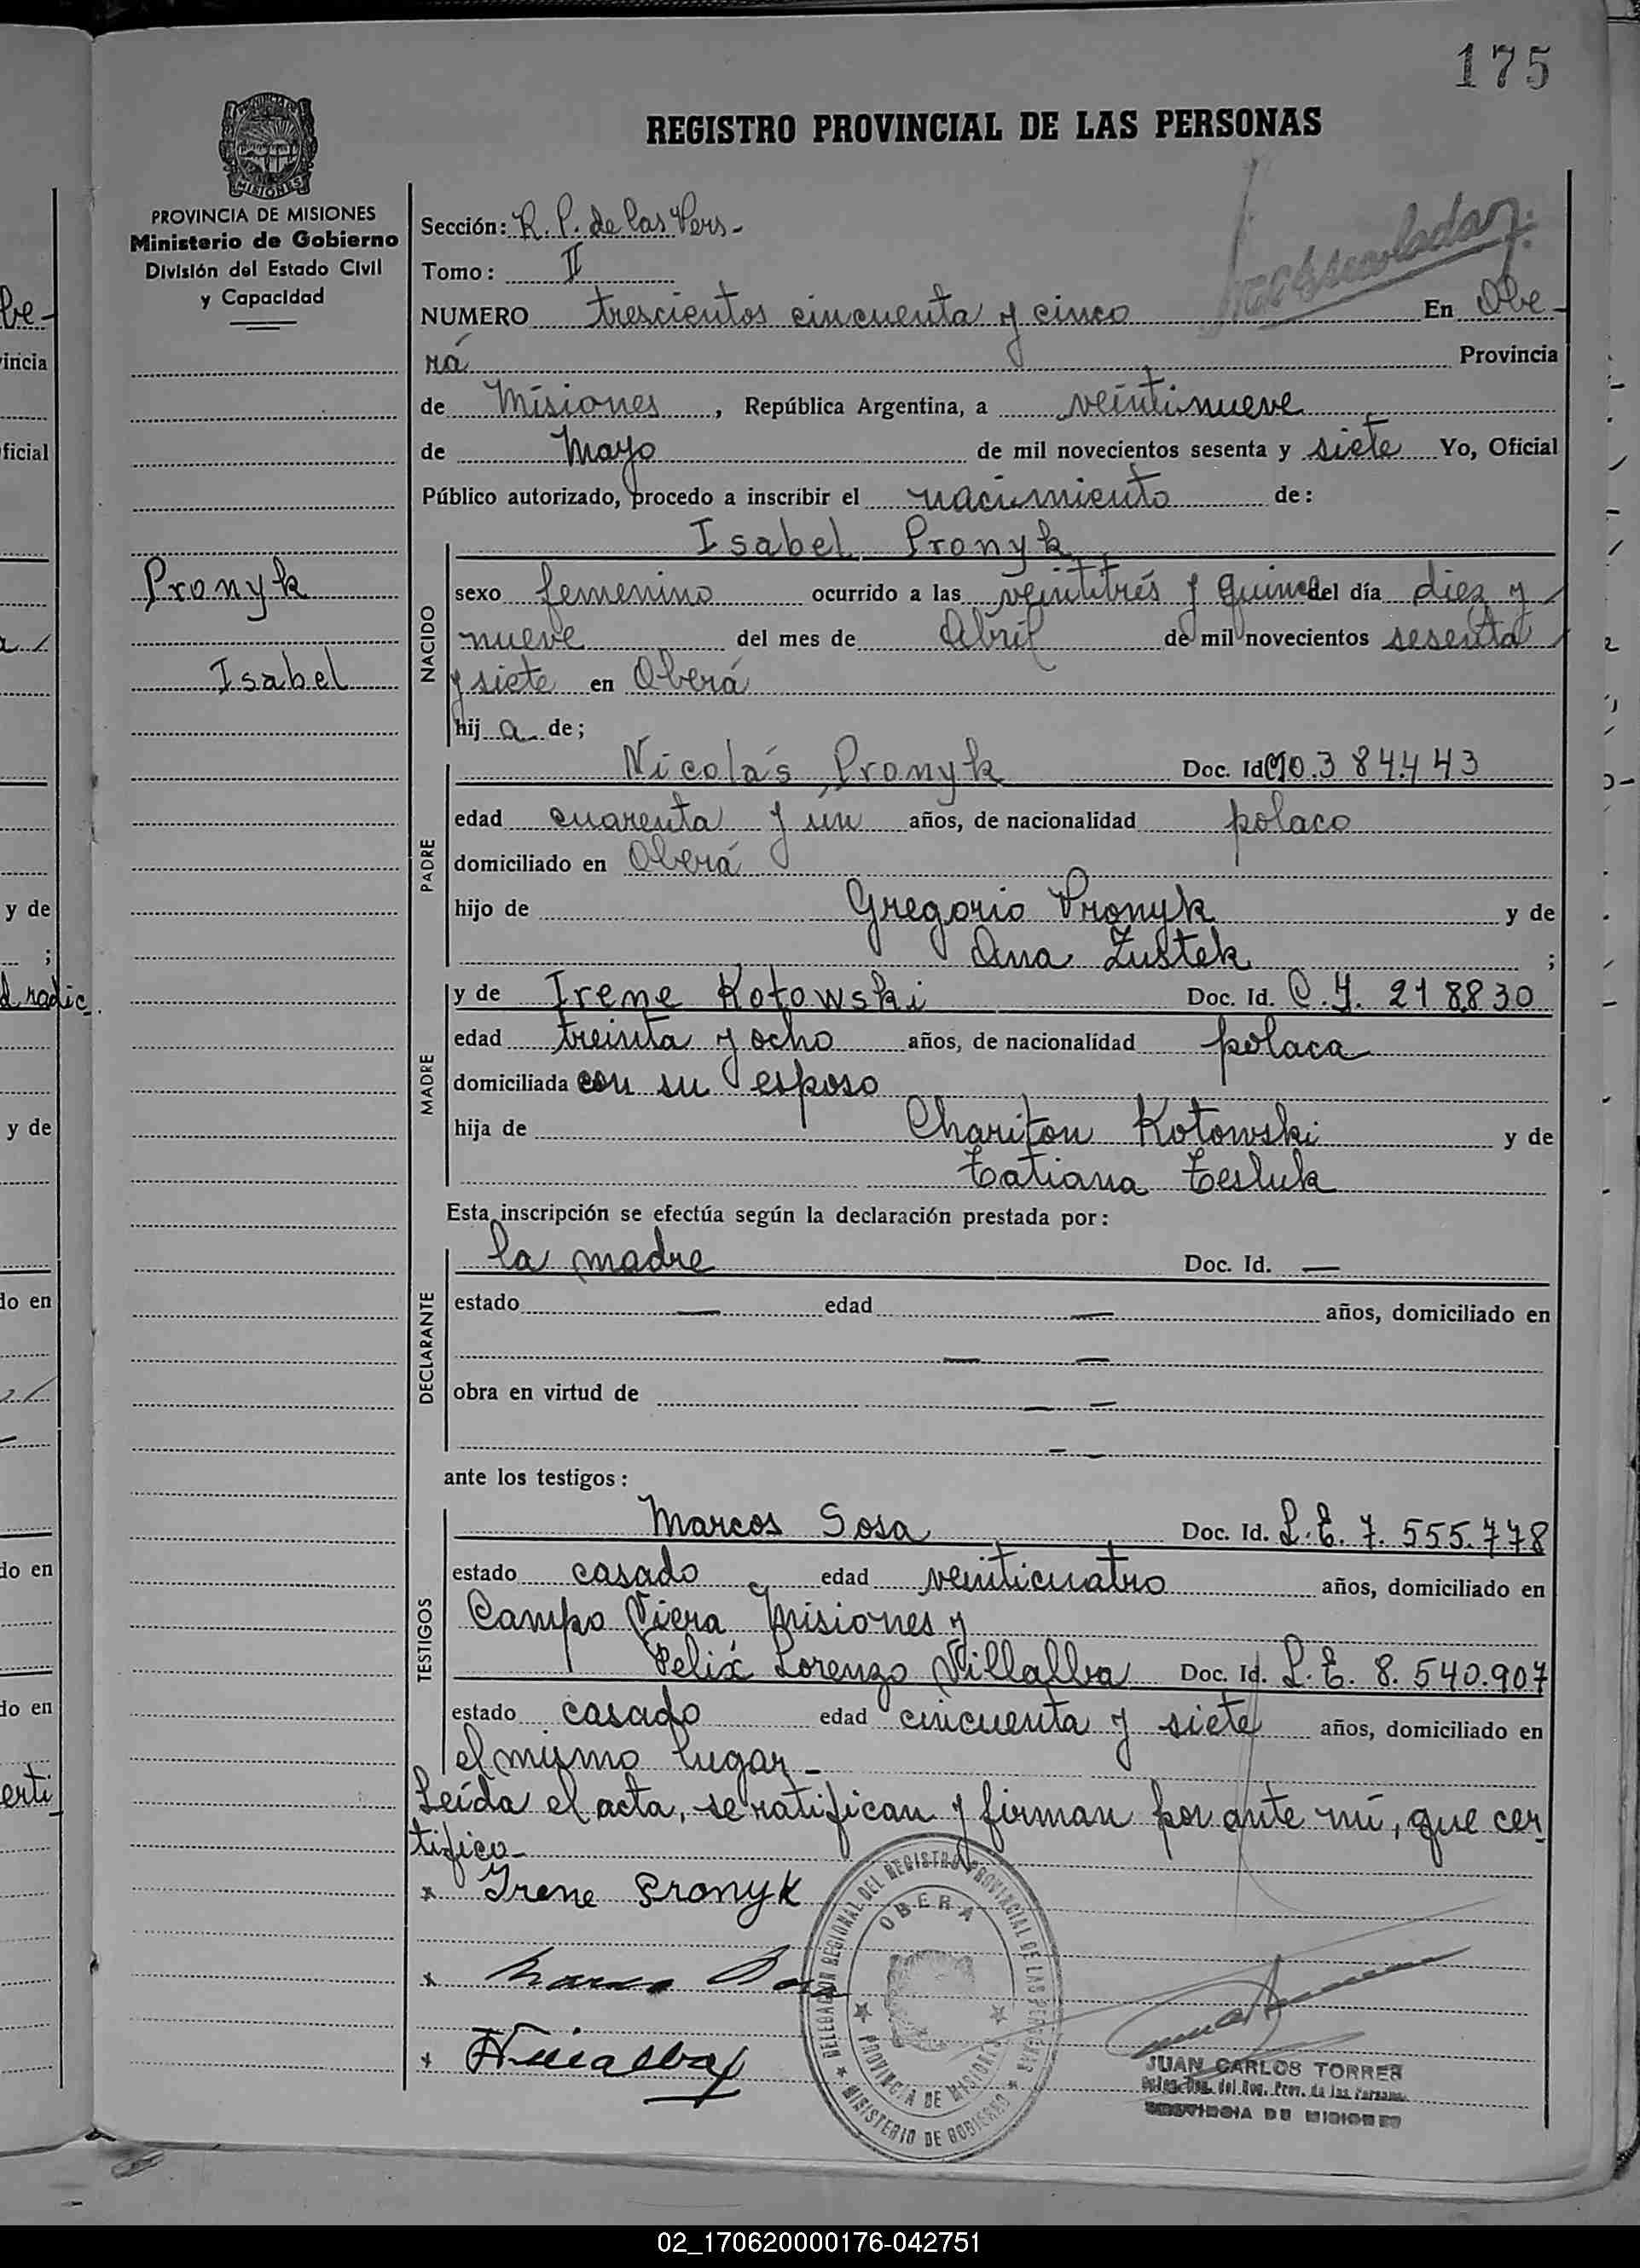 175
REGISTRO PROVINCIAL DE LAS PERSONAS
MISIONES
PROVINCIA DE MISIONES
Ministerio de Gobierno
División del Estado Civil
y Capacidad
Pronyk
Isabel
Sección: R. P. de las Pers-
Tomo: II
NUMERO trescientos cincuenta y cinco En Obe-
rá Provincia
de Misiones, República Argentina, a veintinueve
de Mayo de mil novecientos sesenta y siete Yo, Oficial
Público autorizado, procedo a inscribir el nacimiento de:
Isabel Pronyk
NACIDO
sexo femenino ocurrido a las veintitrés y quince del día diez y
nueve del mes de Abril de mil novecientos sesenta
y siete en Oberá
hij a de;
PADRE
Nicolás Pronyk Doc. Id 10.384.443
edad cuarenta y un años, de nacionalidad polaco
domiciliado en Oberá
hijo de Gregorio Pronyk y de
Ana Zustek ;
MADRE
y de Irene Kotowski Doc. Id. C.I. 218830
edad treinta y ocho años, de nacionalidad polaca
domiciliada con su esposo
hija de Chariton Kotowski y de
Tatiana Tesluk
Esta inscripción se efectúa según la declaración prestada por:
DECLARANTE
la madre Doc. Id. —
estado — edad — años, domiciliado en
— —
obra en virtud de — —
- -
ante los testigos:
TESTIGOS
Marcos Sosa Doc. Id. L.E. 7.555.778
estado casado edad veinticuatro años, domiciliado en
Campo Viera, Misiones y
Felix Lorenzo Villalba Doc. Id. L.E. 8.540.907
estado casado edad cincuenta y siete años, domiciliado en
el mismo lugar-
Leída el acta, se ratifican y firman por ante mí, que cer
tifico-
x Irene Pronyk
x Marcos Sosa
x
DELEGACION REGIONAL DEL REGISTRO PROVINCIAL DE LAS PERSONAS
OBERA
PROVINCIA DE MISIONES
MINISTERIO DE GOBIERNO
JUAN CARLOS TORRES
PROVINCIA DE MISIONES
be-
incia
ficial
y de
;
d radic.
y de
do en
do en
do en
erti
02_170620000176-042751